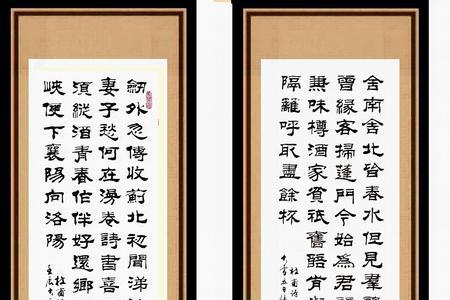 舍南舍北皆春水但見羣
曾緣客掃蓬門今始為君
兼味樽酒家貧祇舊醅肯
隔籬呼取盡餘杯
杜甫詩
劍外忽傳收薊北初聞涕
妻子愁何在漫卷詩書喜
須縱酒青春作伴好還鄉
峽便下襄陽向洛陽
杜甫